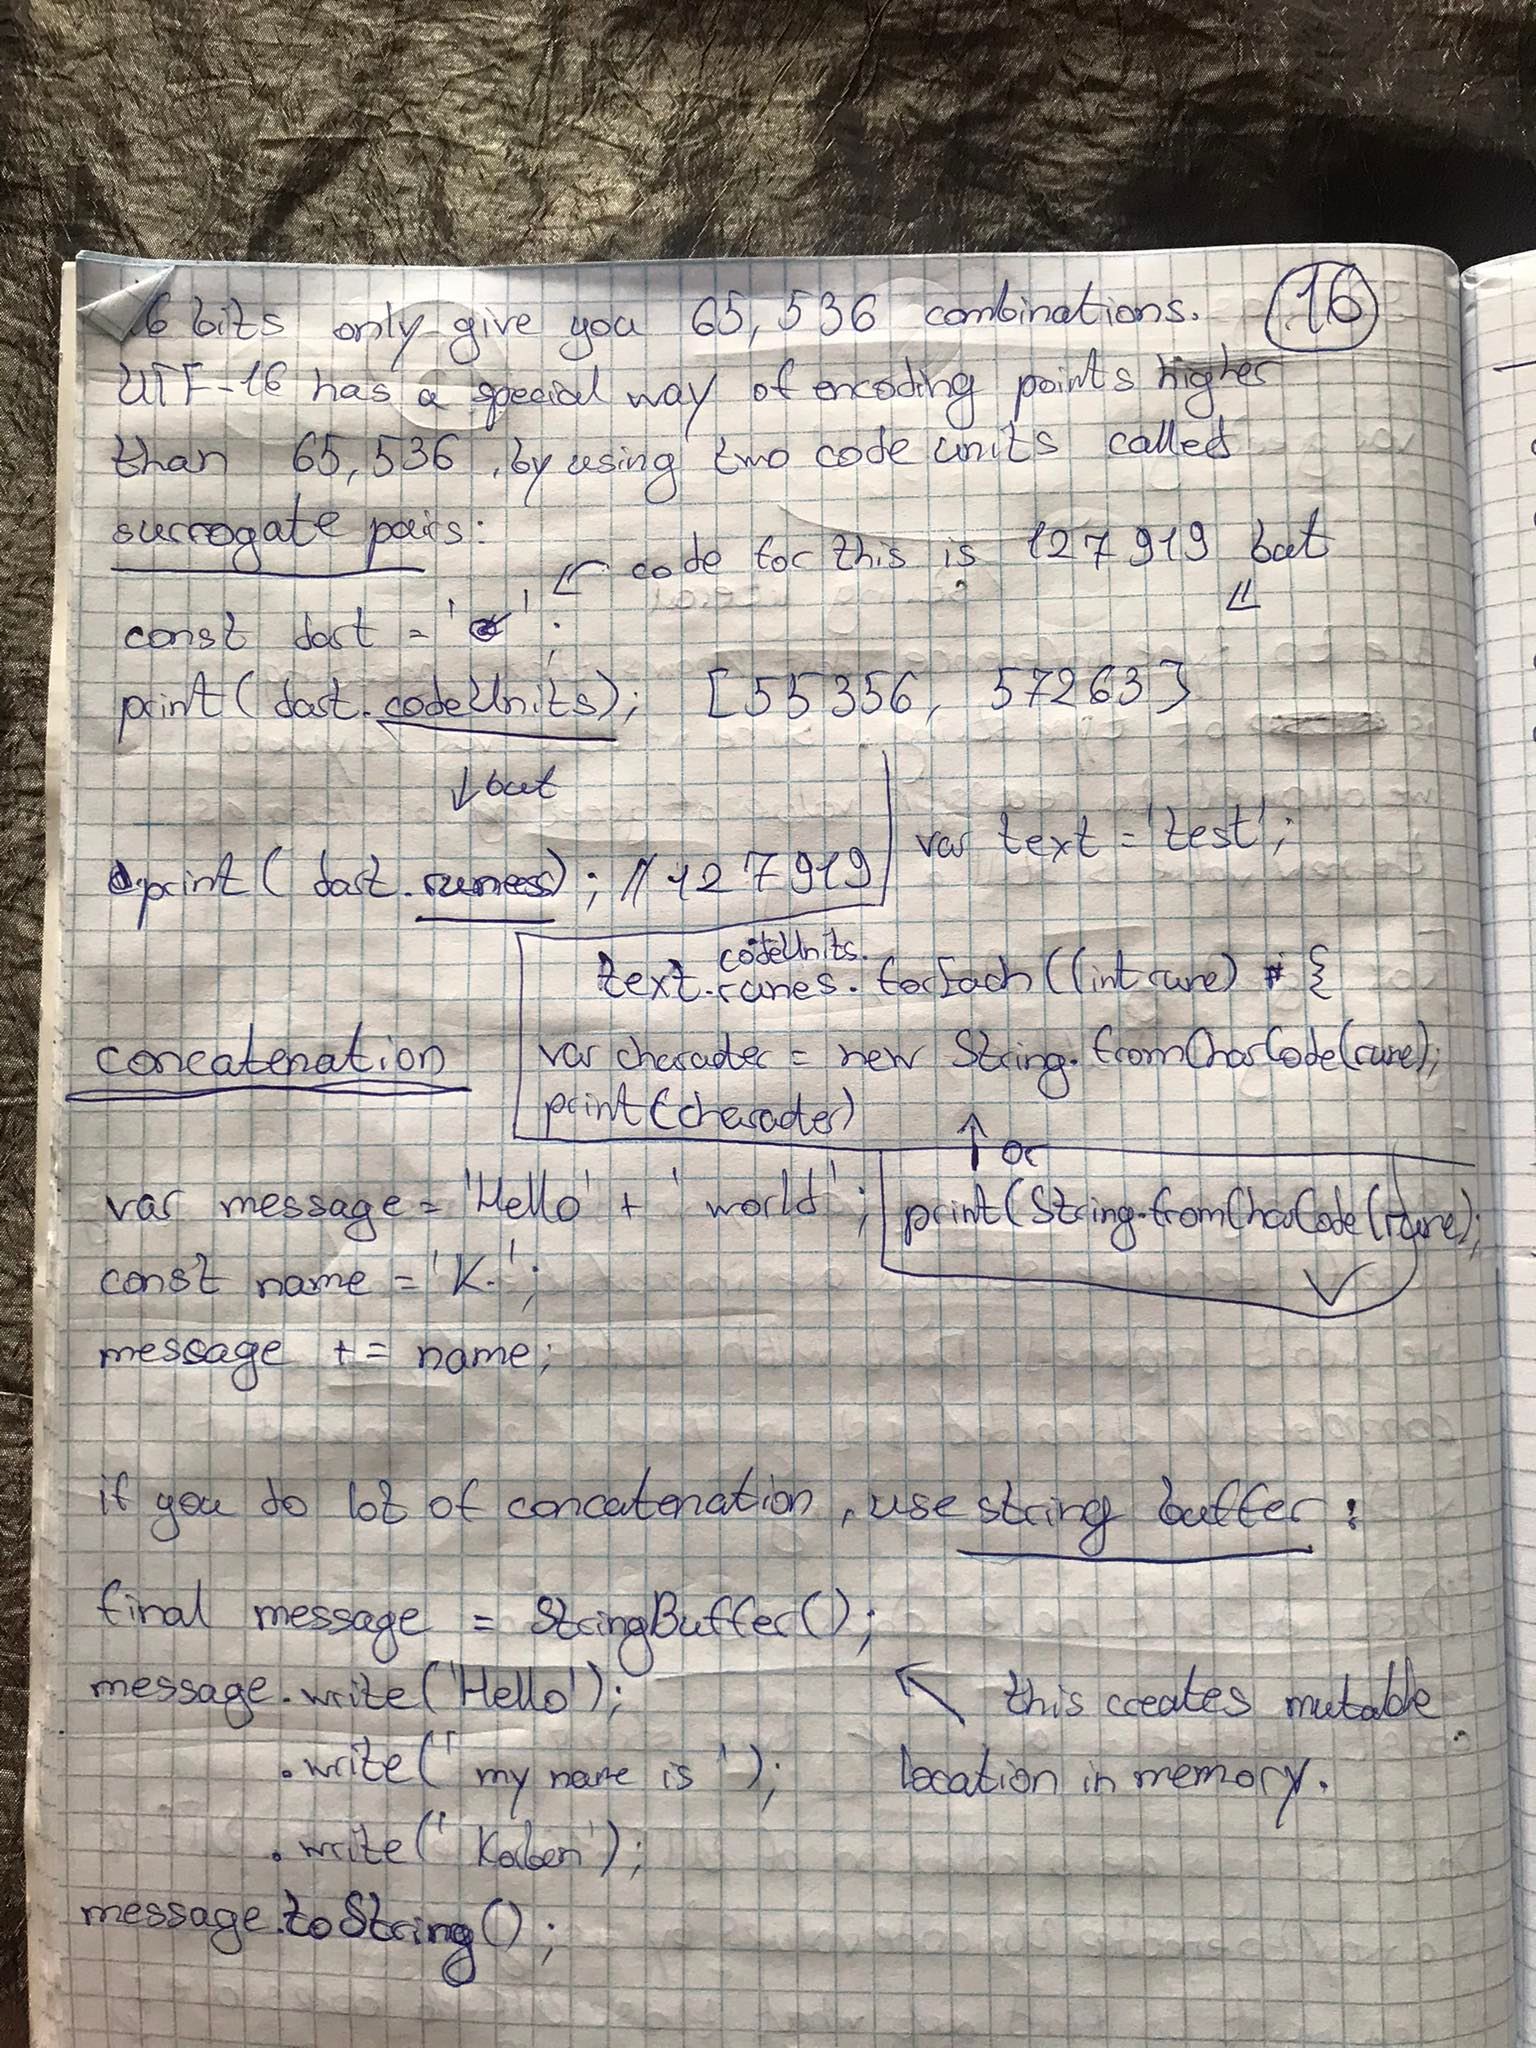 16
6 bits only give you 65,536 combinations.
UTF-16 has a special way of encoding points higher
than 65,536, by using two code units called
surrogate pairs:
← code for this is 127919 but
const dart = ' ' ;
print(dart.codeUnits); [55356, 57263]
↓ but
print( dart.runes) ; // 127919
var text = 'test';
codeUnits.
text.runes.forEach((int rune) {
var character = new String.fromCharCode(rune);
print(character)
↑ or
print(String.fromCharCode(rune);
concatenation
var message = 'Hello' + ' world' ;
const name = 'K.';
message += name;
if you do lot of concatenation, use string buffer :
final message = StringBuffer();
message.write('Hello');
.write(' my name is ');
.write(' Kaben');
message.toString();
← this creates mutable
location in memory.